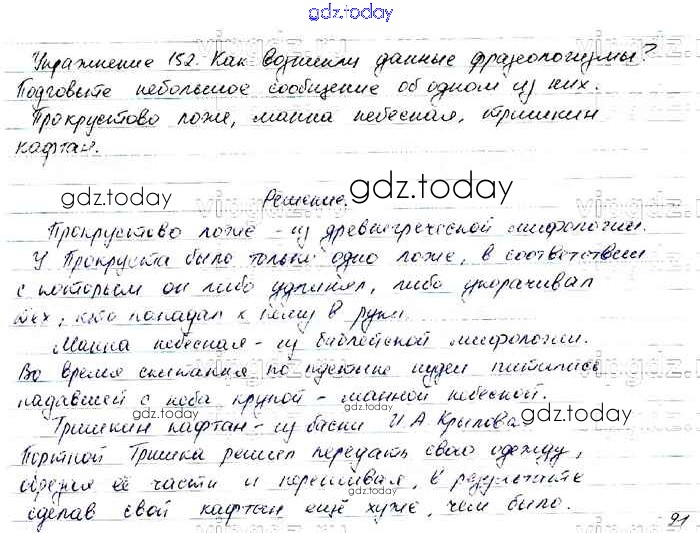 gdz.today
Упражнение 152. Как возникли данные фразеологизмы?
Подготовьте небольшое сообщение об одном из них.
Прокрустово ложе, манна небесная, тришкин
кафтан.
gdz.today
Решение.
gdz.today
Прокрустово ложе - из древнегреческой мифологии.
У Прокруста было только одно ложе, в соответствии
с которым он либо удлинял, либо укорачивал
тех, кто попадал к нему в руки.
Манна небесная - из библейской мифологии.
Во время скитания по пустыне иудеи питались
падавшей с неба крупой - манной небесной.
gdz.today
Тришкин кафтан - из басни И.А. Крылова.
gdz.today
Портной Тришка решил передать свою одежду,
обрезая её части и перешивая, в результате
gdz.today
сделав свой кафтан ещё хуже, чем было.
gdz.today
91